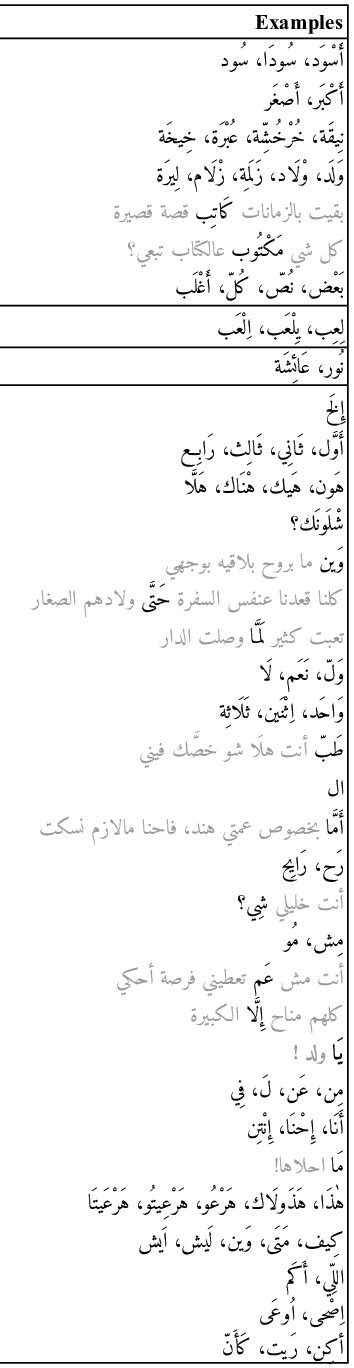 Examples
أَسْوَد، سُودَا، سُود
أَكْبَر، أَصْغَر
نِيقَة، خُرْخُشِّة، عُبْرَة، خِيخَة
وَلَد، وْلَاد، زَلَمِة، زْلَام، لِيرَة
بقيت بالزمانات كَاتِب قصة قصيرة
كل شي مَكْتُوب عالكتّاب تبعي؟
بَعْض، نُصّ، كُلّ، أَغْلَب
لِعِب، يِلْعَب، اِلْعَب
نُور، عَائِشَة
إِلَخ
أَوَّل، ثَانِي، ثَالِث، رَابِع
هَون، هَيك، هْنَاك، هَلَّا
شْلَونَك؟
وَين ما بروح بلاقيه بوجهي
كلنا قعدنا عنفس السفرة حَتَّى ولادهم الصغار
تعبت كثير لَمَّا وصلت الدار
وَلّ، نَعَم، لَا
وَاحَد، اِثْنَين، ثَلَاثِة
طَبّ أنت هلّا شو خصَّك فيني
ال
أَمَّا بخصوص عمتي هند، فاحنا مالازم نسكت
رَح، رَايِح
أنت خليلي شِي؟
مِش، مُو
أنت مش عَم تعطيني فرصة أحكي
كلهم مناح إِلَّا الكبيرة
يَا ولد !
مِن، عَن، لَ، فِي
أَنَا، إِحْنَا، إِنْتِن
مَا احلاها!
هٰذَا، هَذَولَاك، هَرْعُو، هَرْعِيتُو، هَرْعَيتَا
كِيف، مَتَى، وَين، لَيش، اَيش
اللِّي، أَكَم
اِصْحَى، اُوعَى
أَكِن، رَيت، كَأَنّ